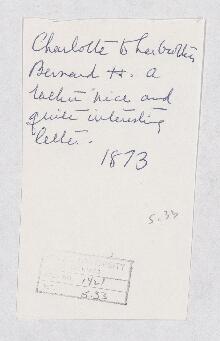 Charlotte to her brother
Bernard H. a
rather nice and
quite interesting
letter.
1873
5.33
1921
5.33